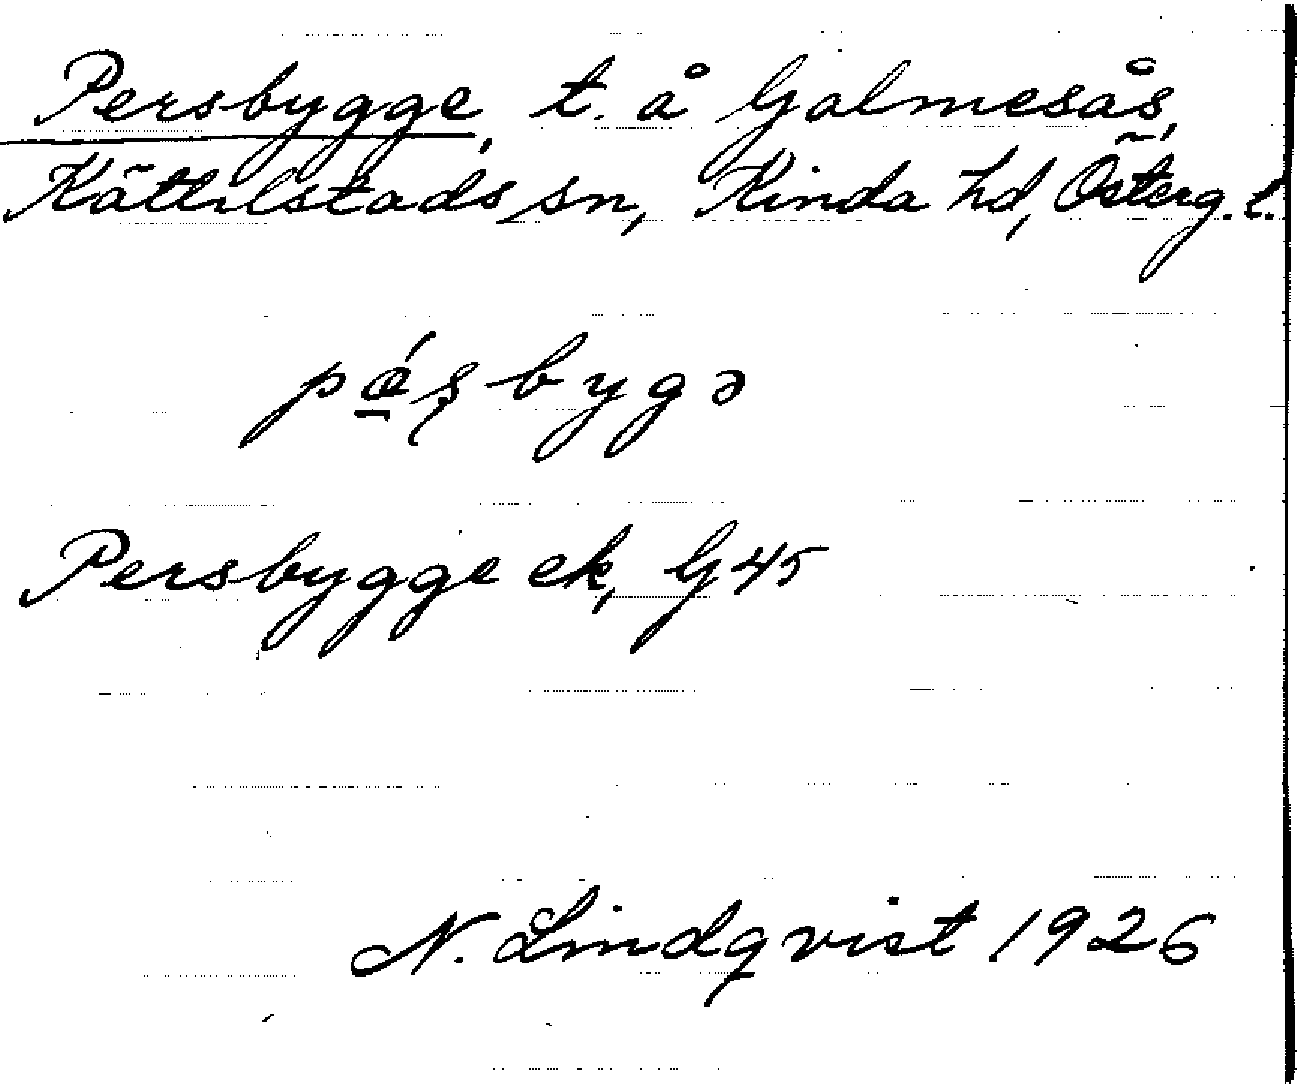 Persbygge, t. å Galmesås,
Kättilstads sn, Kinda hd, Österg. l.
pǽ̱ʂbygə
Persbygge ek, G 45
N. Lindqvist 1926